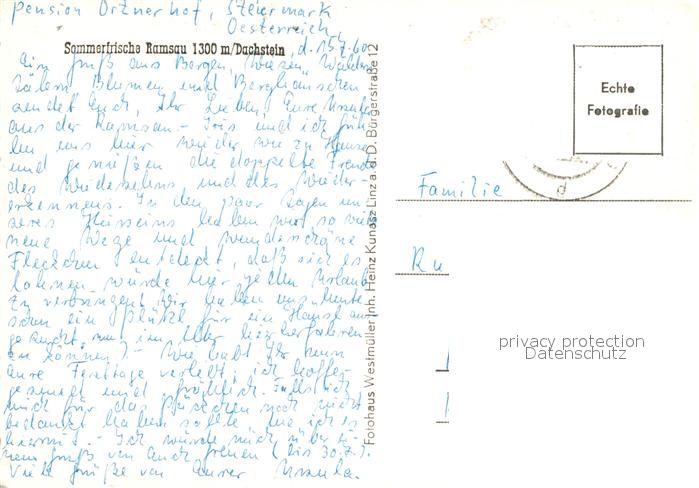 Pension Ortnerhof, Steiermark
Oesterreich,
Sommerfrische Ramsau 1300 m/Dachstein, d. 15.7.60
Ein Gruß aus Bergen, Wiesen, Wäldern
Tälern Blumen und Berghäuschen
sendet Euch, Ihr Lieben, Eure Ursula
aus der Ramsau - Iris und ich füh-
len uns hier wieder wie zu Hause
und genießen die doppelte Freude
des Wiedersehens und des Wieder-
erkennens. In den paar Tagen un-
seres Hierseins haben wir so viele
neue Wege und wunderschöne
Fleckchen entdeckt, daß sich es
lohnen würde hier jeden Urlaub
zu verbringen! Wir haben uns heute
schon ein Plätzchen für ein Haus aus-
gesucht, um im Alter hier
zu können! - Wie habt Ihr denn
Eure Festtage verlebt, ich hoffe
gesund und fröhlich. Falls ich
mich für das Päckchen noch nicht
bedankt haben sollte, tue ich es
hiermit. - Ich würde mich über ei-
nen Gruß von Euch freuen (bis 30.7.).
Viele Grüße von Eurer Ursula.
Fotohaus Westmüller Inh. Heinz Kunasz Linz a. d. D. Bürgerstraße 12
Echte
Fotografie
d
Familie
Ru
privacy protection
Datenschutz